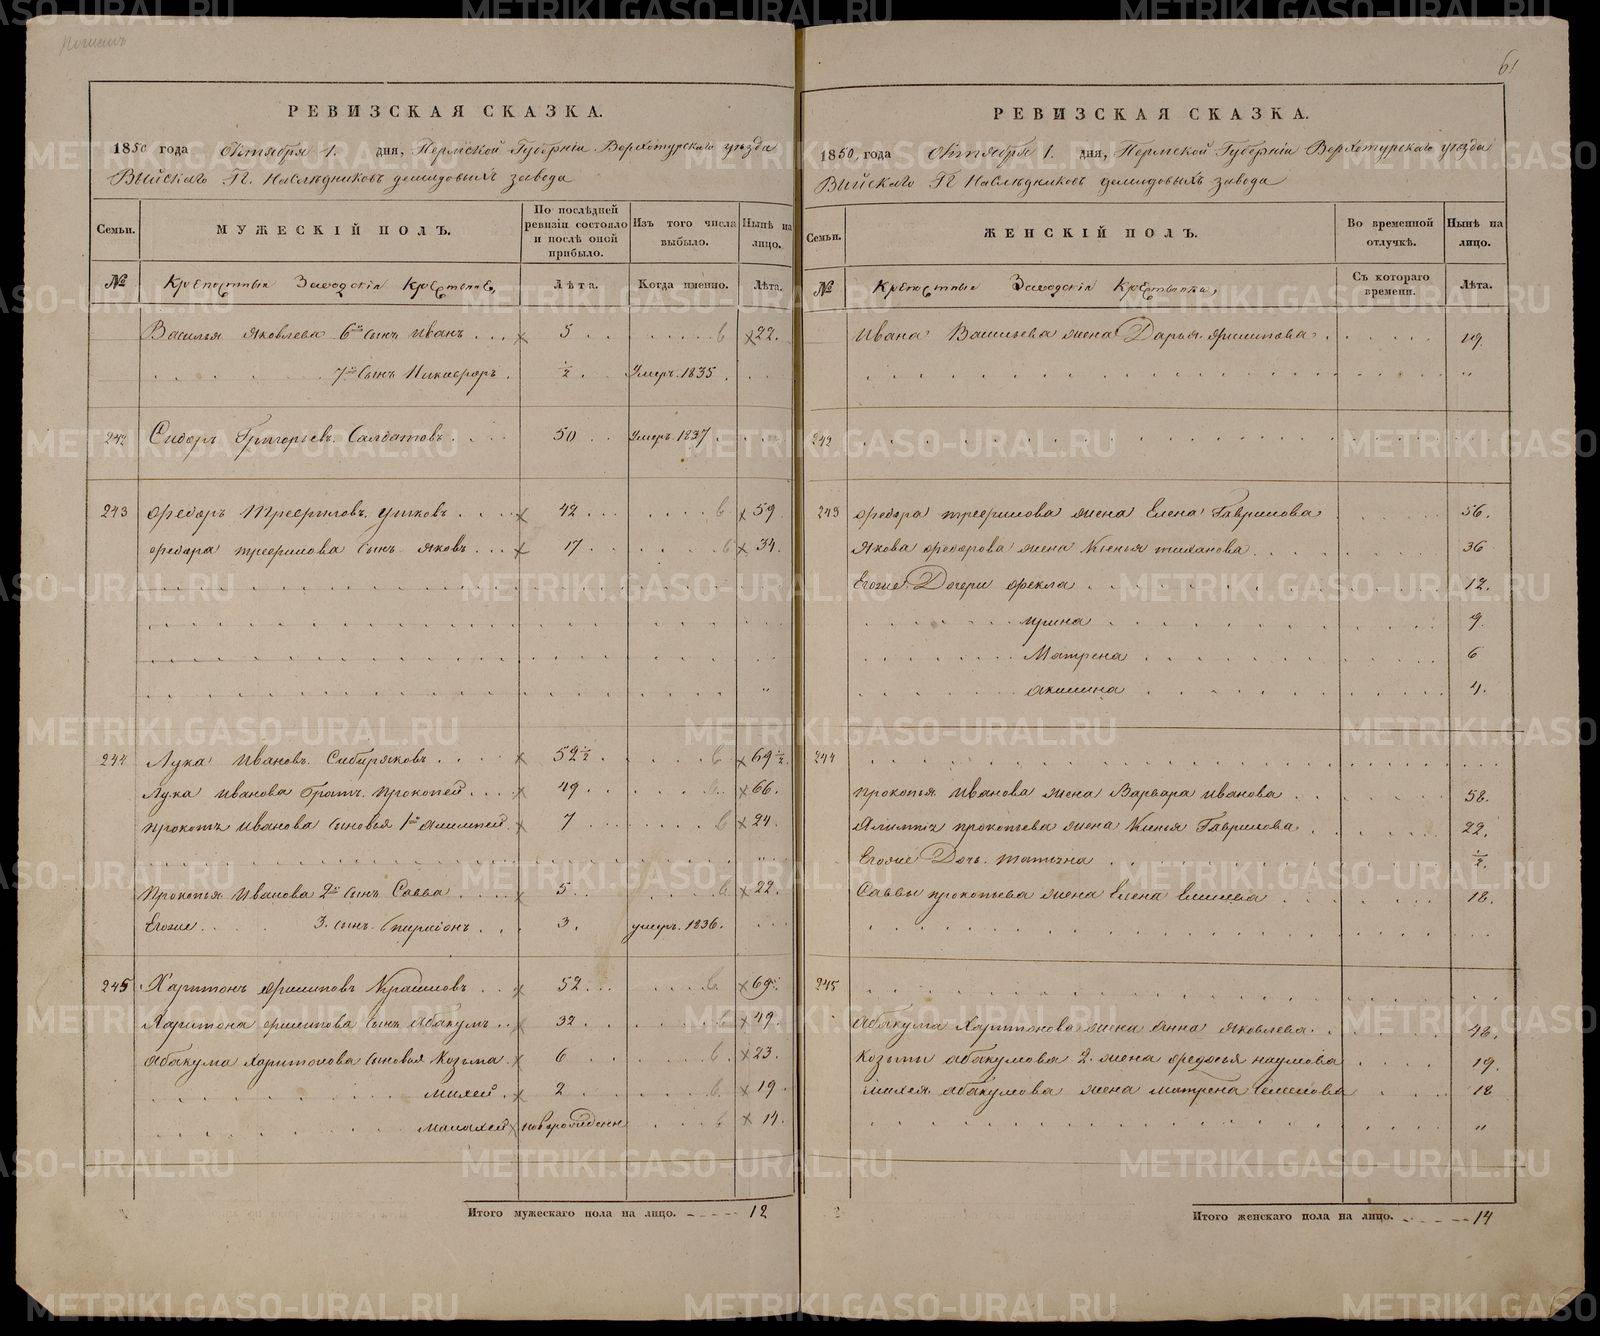 61
РЕВИЗСКАЯ СКАЗКА.
1850 года Октября 1. дня, Пермской Губерніи Верхотурскаго уѣзда
Выйскаго Г. Наслѣдниковъ демидовыхъ завода
Семьи.
МУЖЕСКІЙ ПОЛЪ.
По послѣдней ревизіи состояло и послѣ оной прибыло.
Изъ того числа выбыло.
Нынѣ на лицо.
№ Крѣпостные Заводскія Крестьяне,
Лѣта. Когда именно. Лѣта.
Василья Яковлева 6й сынъ Иванъ 5 22.
7й Сынъ Никифоръ ½ Умеръ. 1835.
242 Сидоръ Григорьевъ Салдатовъ 50 Умеръ. 1837
243 Федоръ Трефиловъ Ушковъ 42 59
Федора трефилова Сынъ Яковъ 17 34.
244 Лука Ивановъ Сибиряковъ 52½ 69½.
Лука Иванова братъ Прокопей 49 66.
Прокопья Иванова Сыновья 1й Алимпей 7 24
Прокопья Иванова 2й Сынъ Савва 5 22.
Егоже 3. Сынъ Спиридонъ 3. умеръ. 1836.
245 Харитонъ Филиповъ Крашиловъ 52 69.
Харитона филипова Сынъ Абакумъ 32 49.
Абакума Харитонова Сыновья Козьма 6 23
Михей 2 19
Малахей новорожденн 14.
Итого мужескаго пола на лицо. 12
РЕВИЗСКАЯ СКАЗКА.
1850, года Октября 1. дня, Пермской Губерніи Верхотурскаго уѣзда
Выйскаго Г. Наслѣдниковъ демидовыхъ завода
Семьи.
ЖЕНСКІЙ ПОЛЪ.
Во временной отлучкѣ.
Нынѣ на лицо.
№ Крѣпостные Заводскія Крестьянки,
Съ котораго времени. Лѣта.
Ивана Васильева жена Дарья Филипова 19
242
243 Федора трефилова жена Елена Гаврилова 56.
Якова Федорова жена Ксенья 36
Егоже Дочери Фекла 12.
Ирина 9.
Матрена 6
Акилина 4.
244
Прокопья Иванова жена Варвара Иванова 58.
Алимпія прокопьева жена Ксенья Гаврилова 22.
Егоже Дочь татьяна ½
Саввы прокопьева жена Елена 18.
245
Абакума Харитонова жена Анна Яковлева 48.
Козьмы абакумова 2. жена Наумова 19.
Михея абакумова жена матрена Семенова 18
Итого женскаго пола на лицо. 14
METRIKI.GASO-URAL.RU